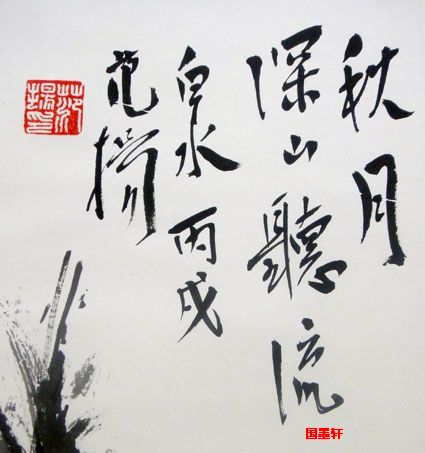 秋月
深山聽流
泉 丙戌
范揚
范揚印
国墨轩